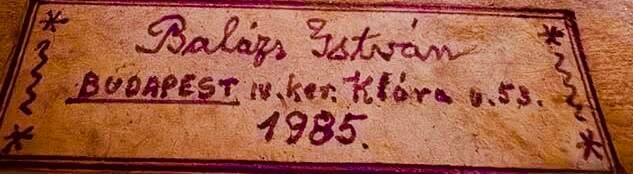 Balázs István
BUDAPEST IV. ker. Klára u. 53.
1985.